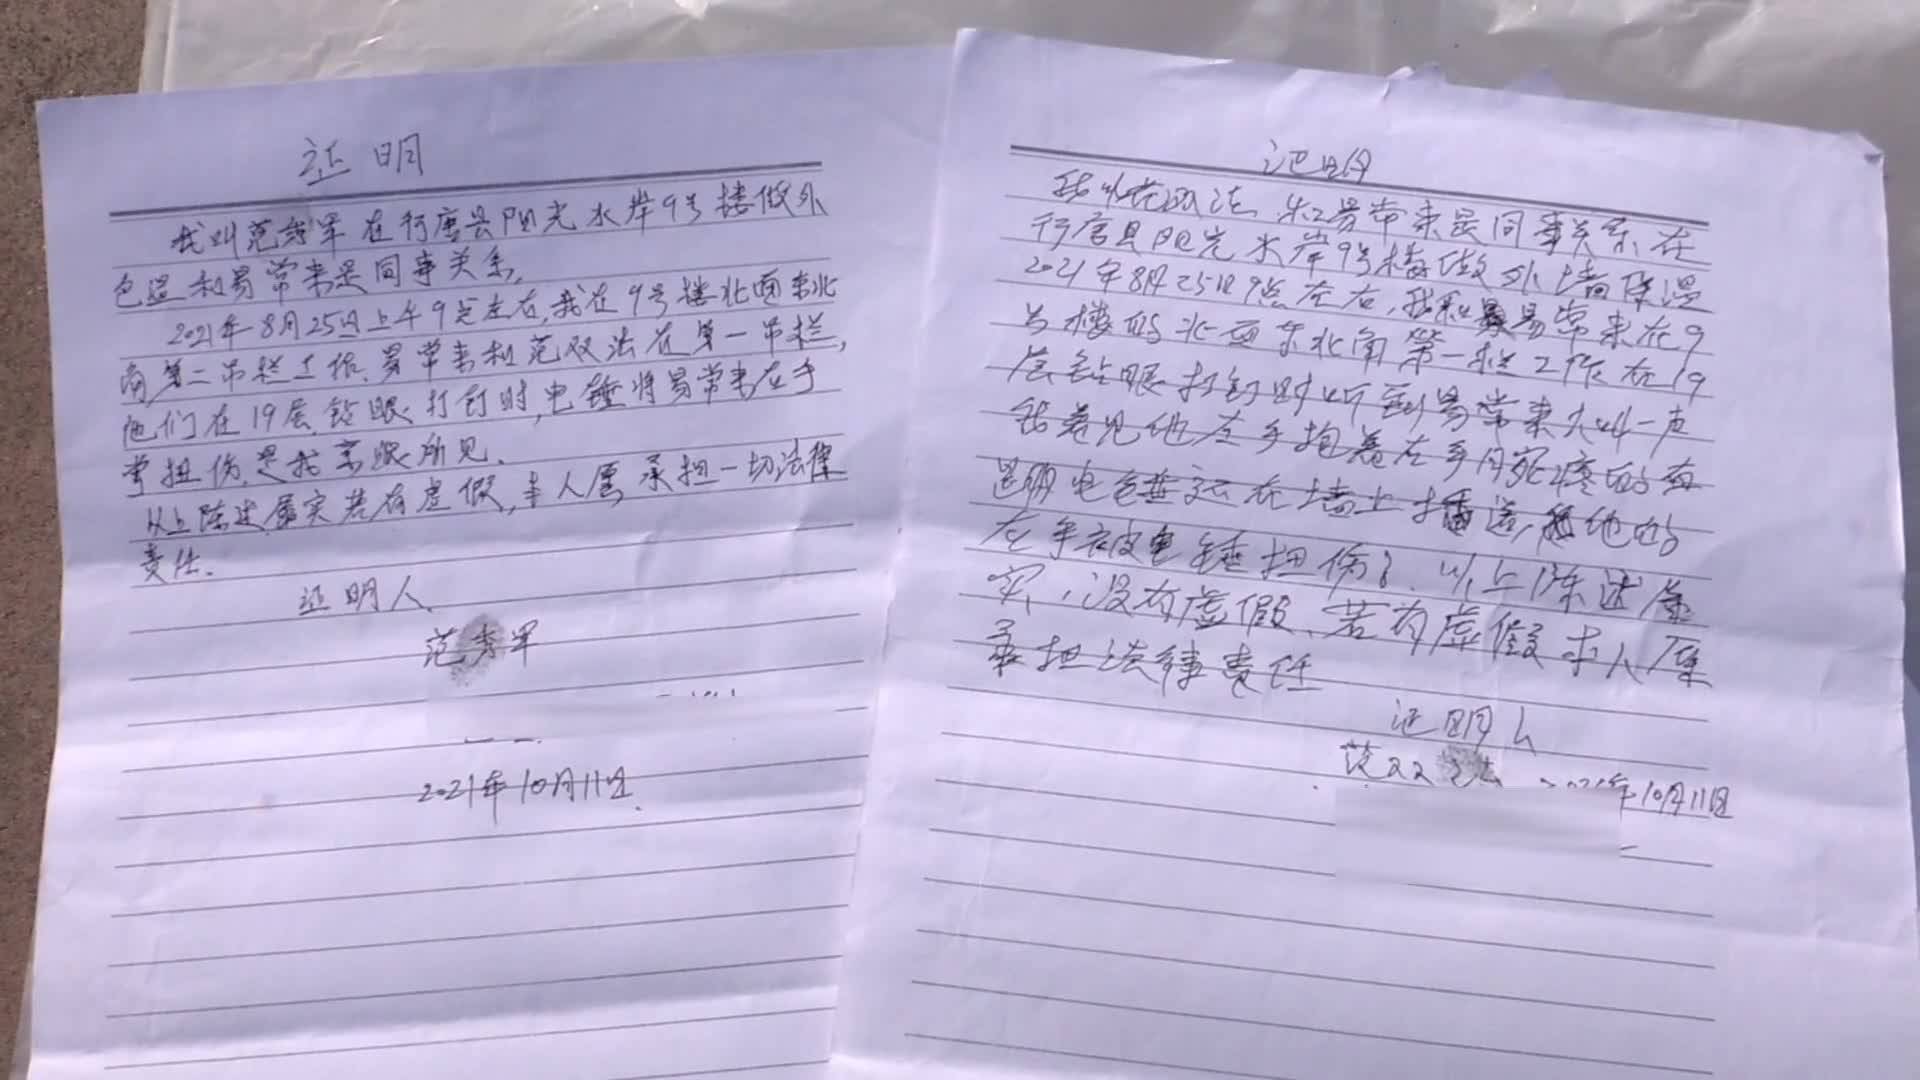 证明
我叫范秀军在行唐县阳光水岸9号楼做外
包温和易常来是同事关系,
2021年8月25日上午9点左右,我在9号楼北面东北
角第二吊栏工作、易常来和范双法在第一吊栏,
他们在19层钻眼打钉时,电锤将易常来左手
掌扭伤是我亲眼所见、
以上陈述属实若有虚假,本人愿承担一切法律
责任.
证明人、
范秀军
2021年10月11日
证明
我叫范双法 和易常来是同事关系在
行唐县阳光水岸9号楼做外墙保温
2021年8月25日9点左右,我和易常来在9
号楼的北面东北角第一栏工作在19
层钻眼打钉时听到易常来大叫一声
我看见他右手抱着左手
电锤还在墙上 他的
左手被电锤扭伤了、以上陈述属
实、没有虚假、若有虚假本人愿
承担法律责任
证明人
范双法 2021年10月11日